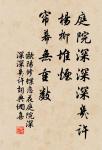 庭院深深深幾許
楊柳堆煙
簾幕無重數
歐陽修蝶戀花庭院深
深深幾許詞典網